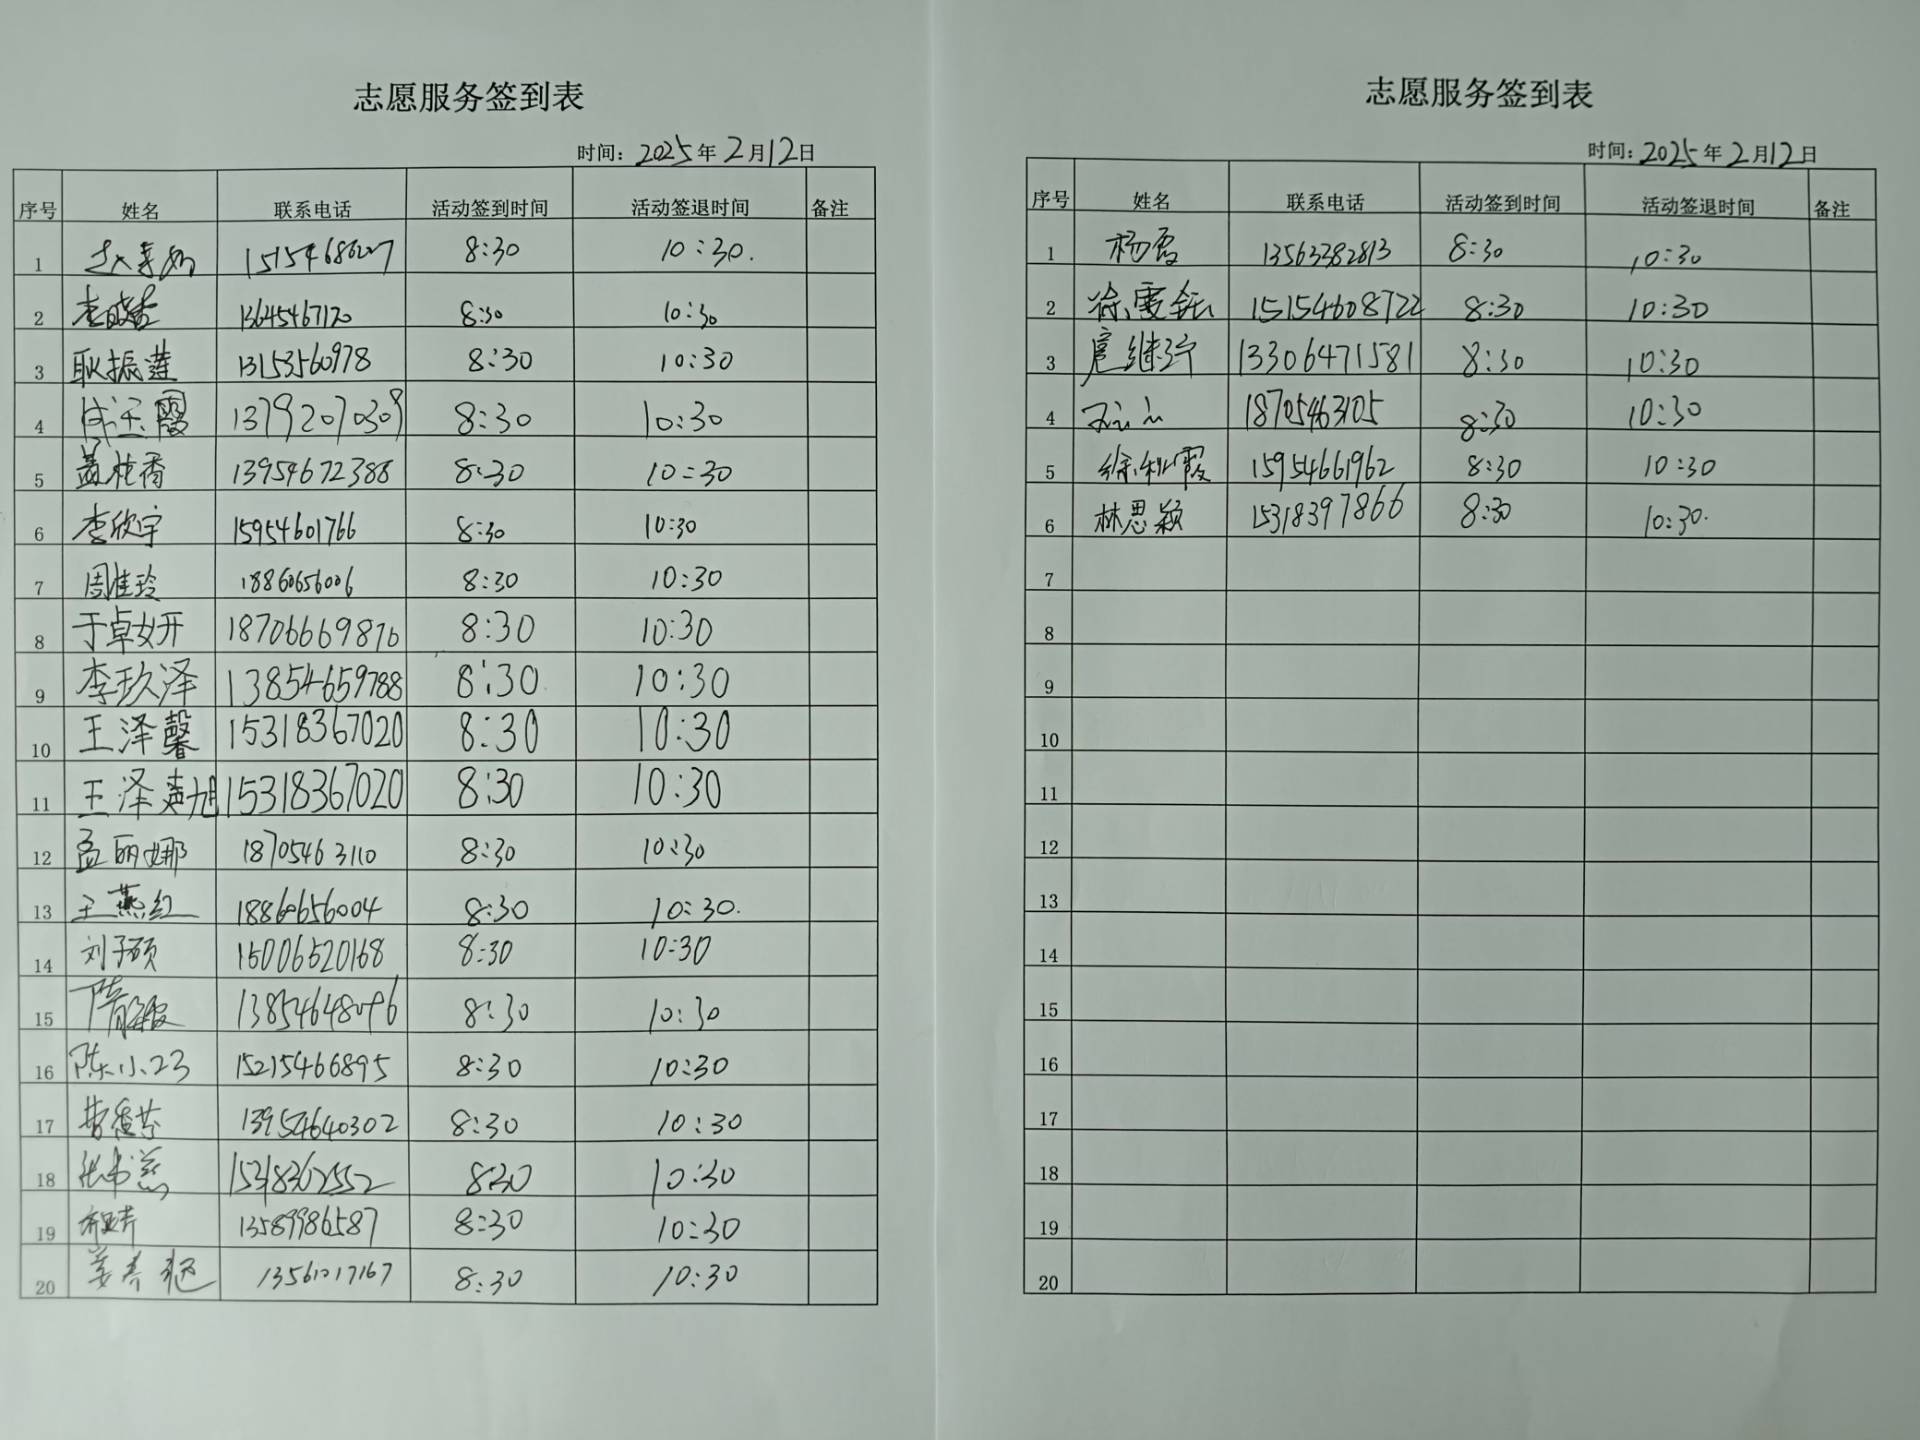 志愿服务签到表
时间：2025年2月12日
序号 姓名 联系电话 活动签到时间 活动签退时间 备注
1 8:30 10:30.
2 13645467120 8:30 10:30
3 耿振莲 13153560978 8:30 10:30
4 成玉霞 13792070309 8:30 10:30
5 黄桂香 13954672388 8:30 10:30
6 李欣宇 15954601766 8:30 10:30
7 周佳玲 18860656006 8:30 10:30
8 于卓妍 18706669876 8:30 10:30
9 李玖泽 13854659788 8:30 10:30
10 王泽馨 15318367020 8:30 10:30
11 王泽 15318367020 8:30 10:30
12 孟丽娜 18705463110 8:30 10:30
13 王燕红 18860656004 8:30 10:30.
14 刘子硕 15006520168 8:30 10:30
15 8:30 10:30
16 陈小23 15215466895 8:30 10:30
17 13954640302 8:30 10:30
18 张书燕 15318362552 8:30 10:30
19 13589986587 8:30 10:30
20 姜 13561017167 8:30 10:30
志愿服务签到表
时间：2025年2月12日
序号 姓名 联系电话 活动签到时间 活动签退时间 备注
1 杨霞 13563382813 8:30 10:30
2 徐雯钰 15154608722 8:30 10:30
3 扈继宁 13306471581 8:30 10:30
4 18705463105 8:30 10:30
5 徐秋霞 15954661962 8:30 10:30
6 林思颖 15318397866 8:30 10:30.
7
8
9
10
11
12
13
14
15
16
17
18
19
20